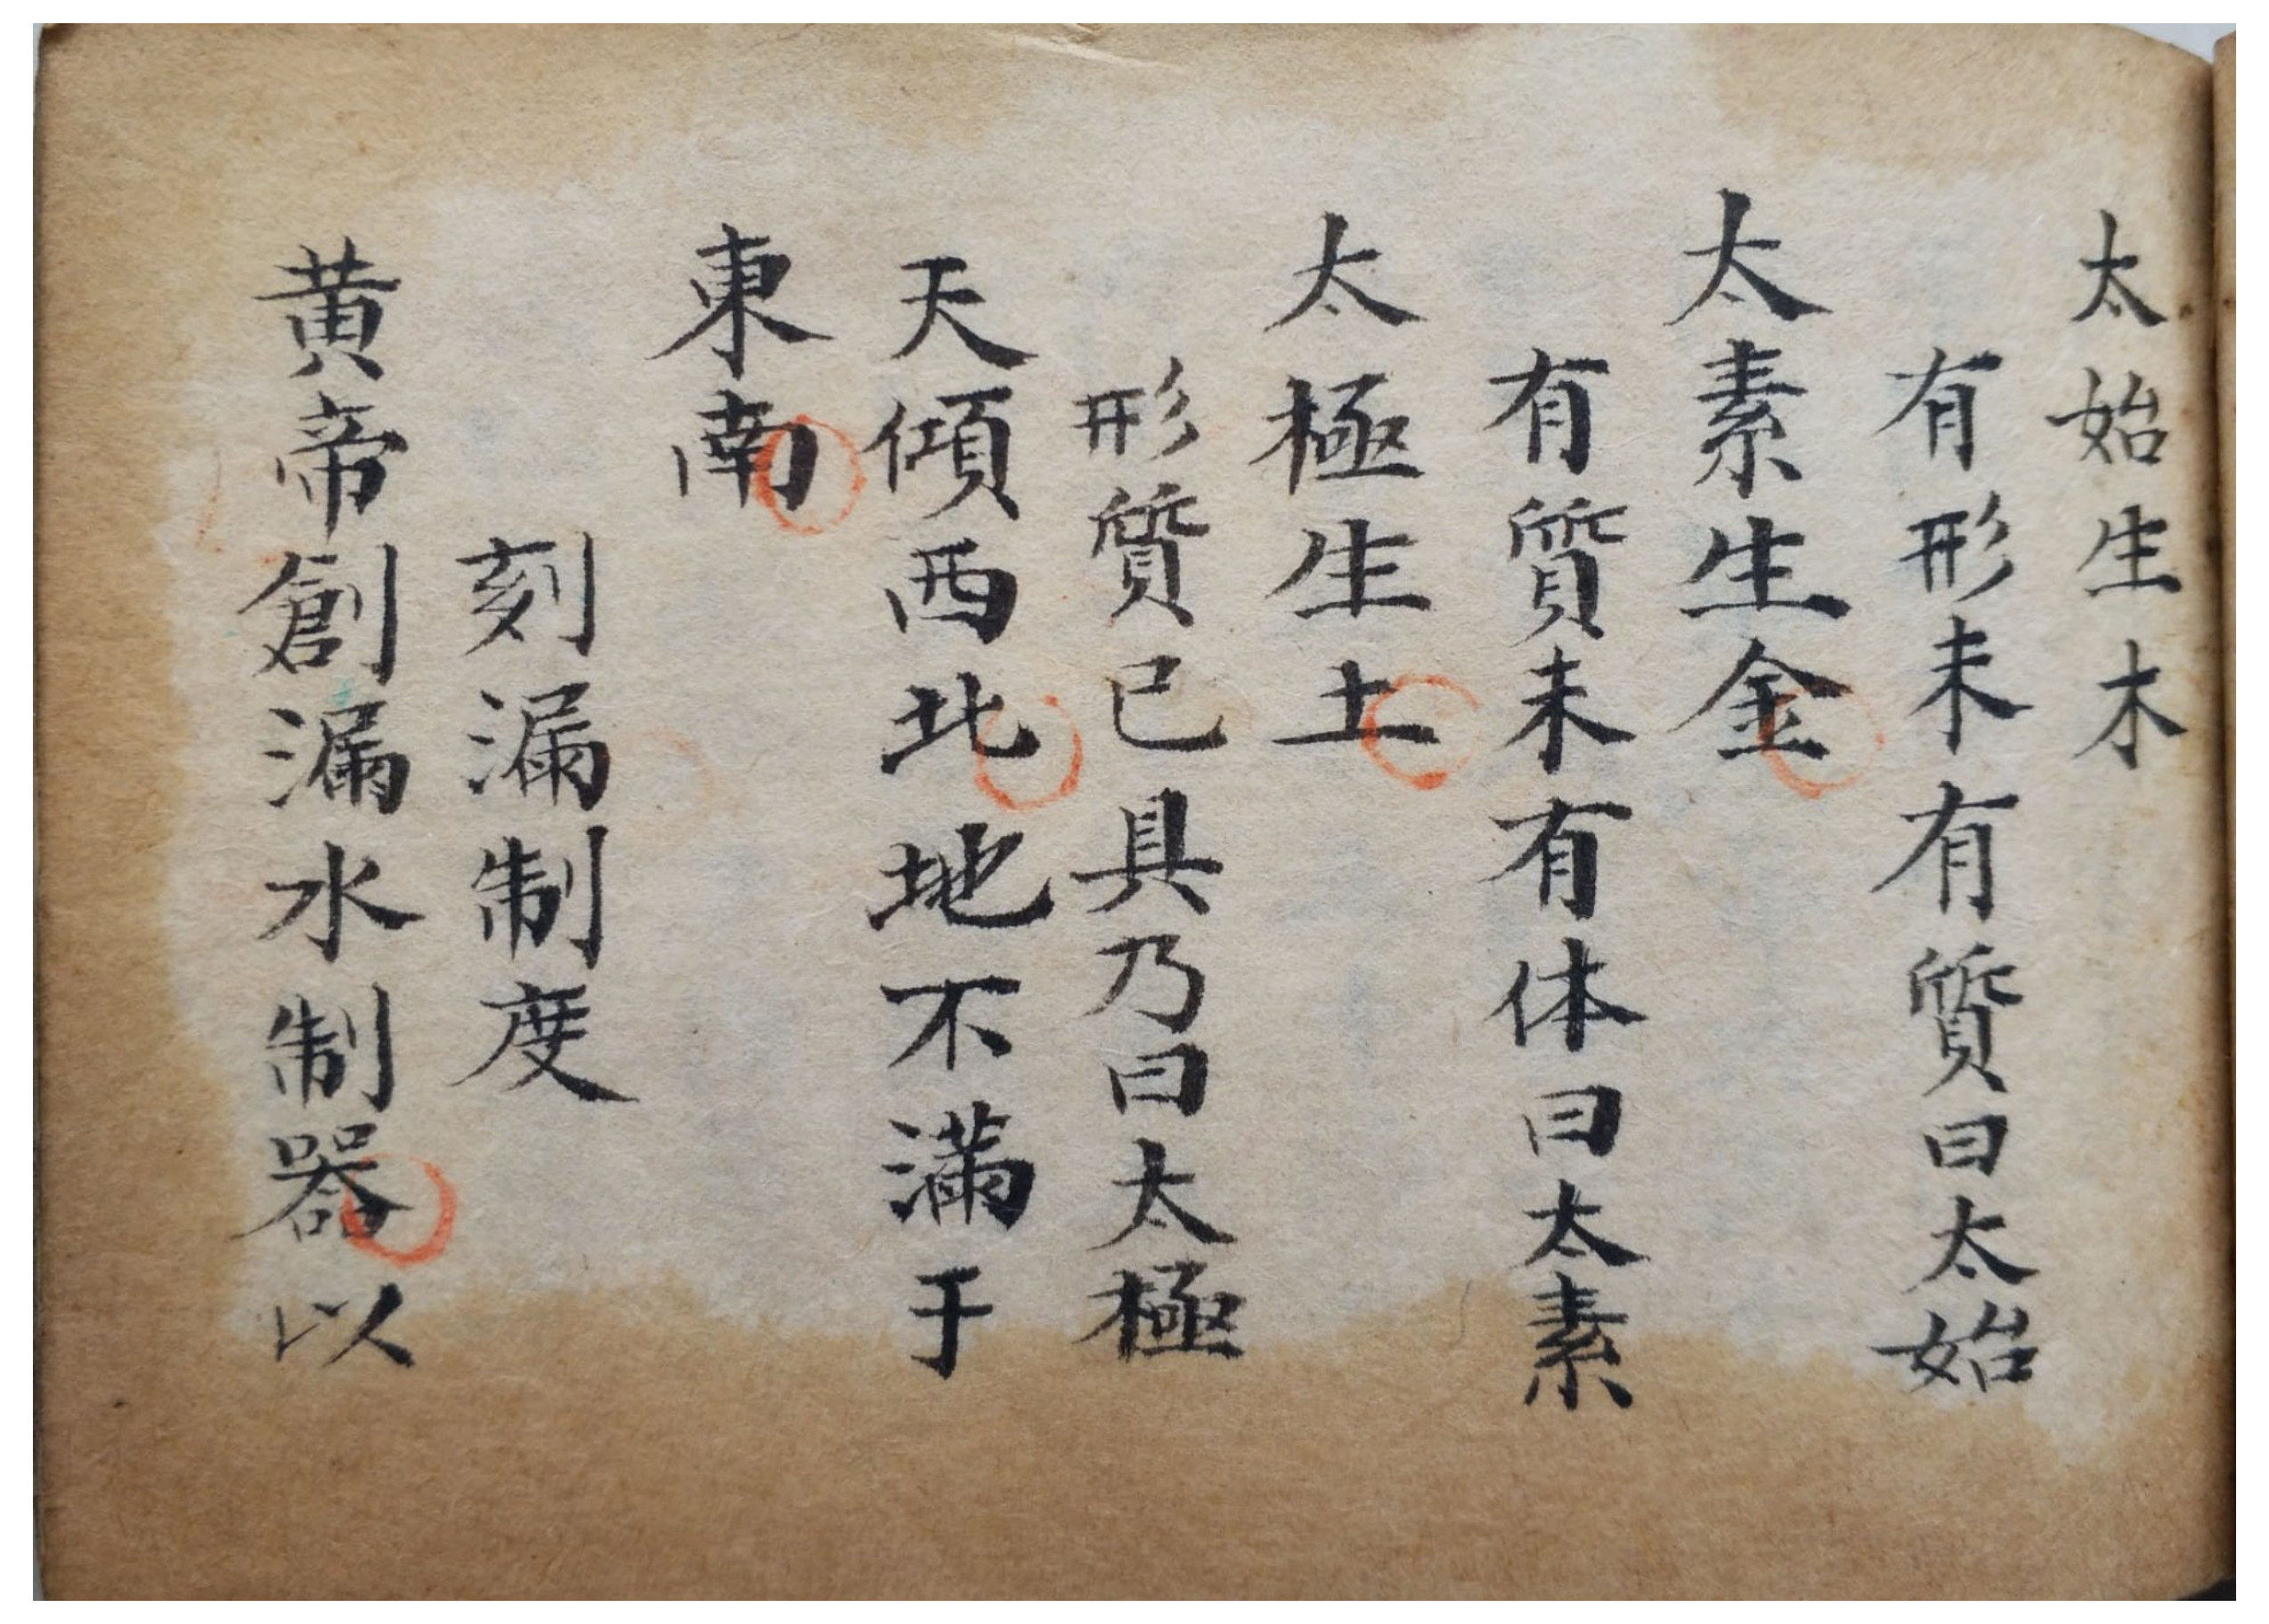 太始生木
有形未有質曰太始
太素生金
有質未有体曰太素
太極生土
形質已具乃曰太極
天傾西北地不滿于
東南
刻漏制度
黃帝創漏水制器以